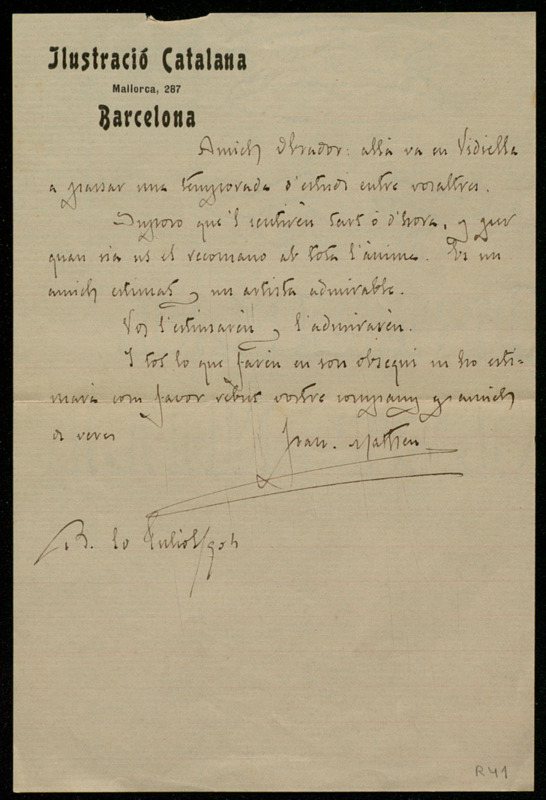 Ilustració Catalana
Mallorca, 287
Barcelona
Amich Obrador: allá va en Vidiella
a passar una temporada d'estudi entre vosaltres.
Suposo que'l sentirèu tart ó d'hora, y per
quan sia us el recomano ab tota l'ánima. Es un
amich estimat y un artista admirable.
Vos l'estimarèu y l'admirarèu.
I tot lo que farèu en son obsequi us ho esti=
mará com favor rebut vostre company y amich
de veres
Matheu
B. 20 Juliol 904
R41